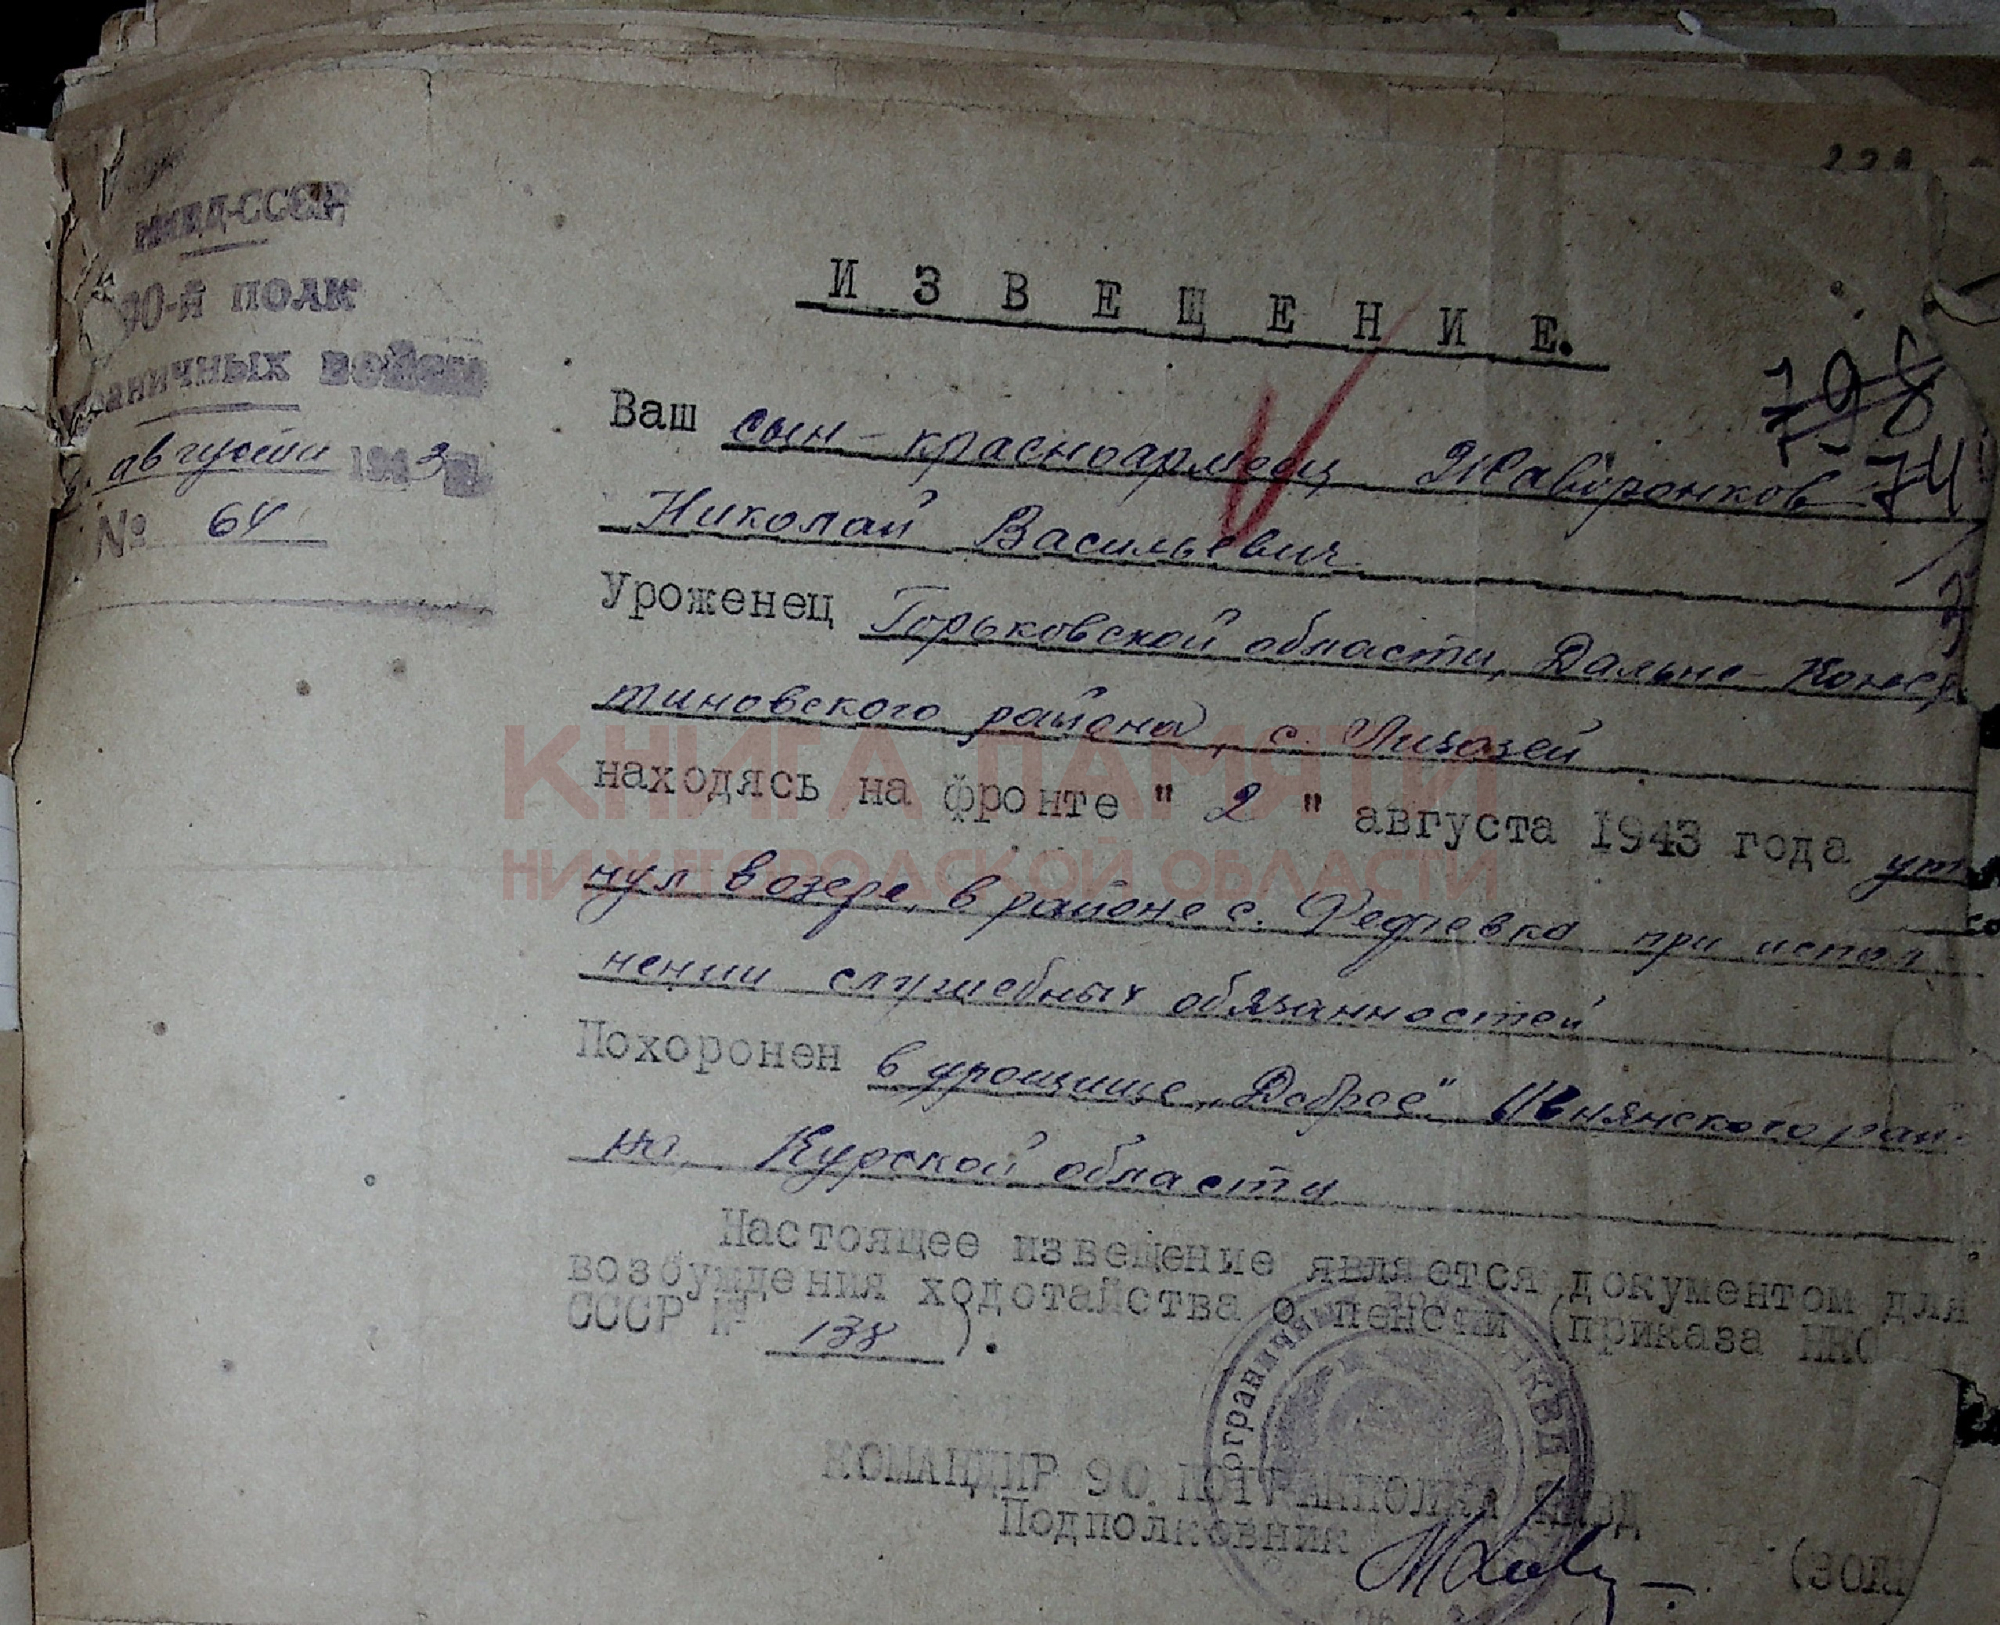 НКВД-СССР
90-й полк
войск
августа 1943
№ 64
ИЗВЕЩЕНИЕ.
798
74
Ваш сын - красноармеец Жаворонков
Николай Васильевич
Уроженец Горьковской области, Дальне-Конс
тиновского района, с.
находясь на фронте " 2 " августа 1943 года ут
нул в озере, в районе с. при испол
нении служебных обязанностей
Похоронен в урощище "Доброе" Ивнянского рай-
на, Курской области
Настоящее извещение является документом для
возбуждения ходотайства о пенсии (приказа НКО
СССР № 138 ).
КОМАНДИР 90 ПОГРАНПОЛКА НКВД
Подполковник
КНИГА ПАМЯТИ
НИЖЕГОРОДСКОЙ ОБЛАСТИ